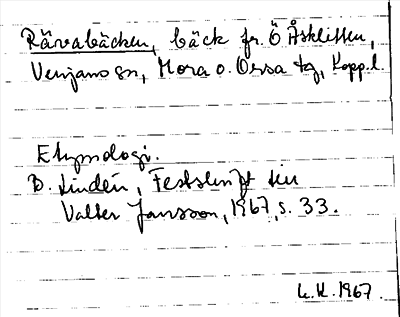 Rävabäcken, bäck fr. Ö Åsklitten,
Venjans sn, Mora o. Orsa tg, Kopp.l.
Etymologi.
B. Lindén, Festskrift till
Valter Jansson, 1967, s. 33.
L.H. 1967.